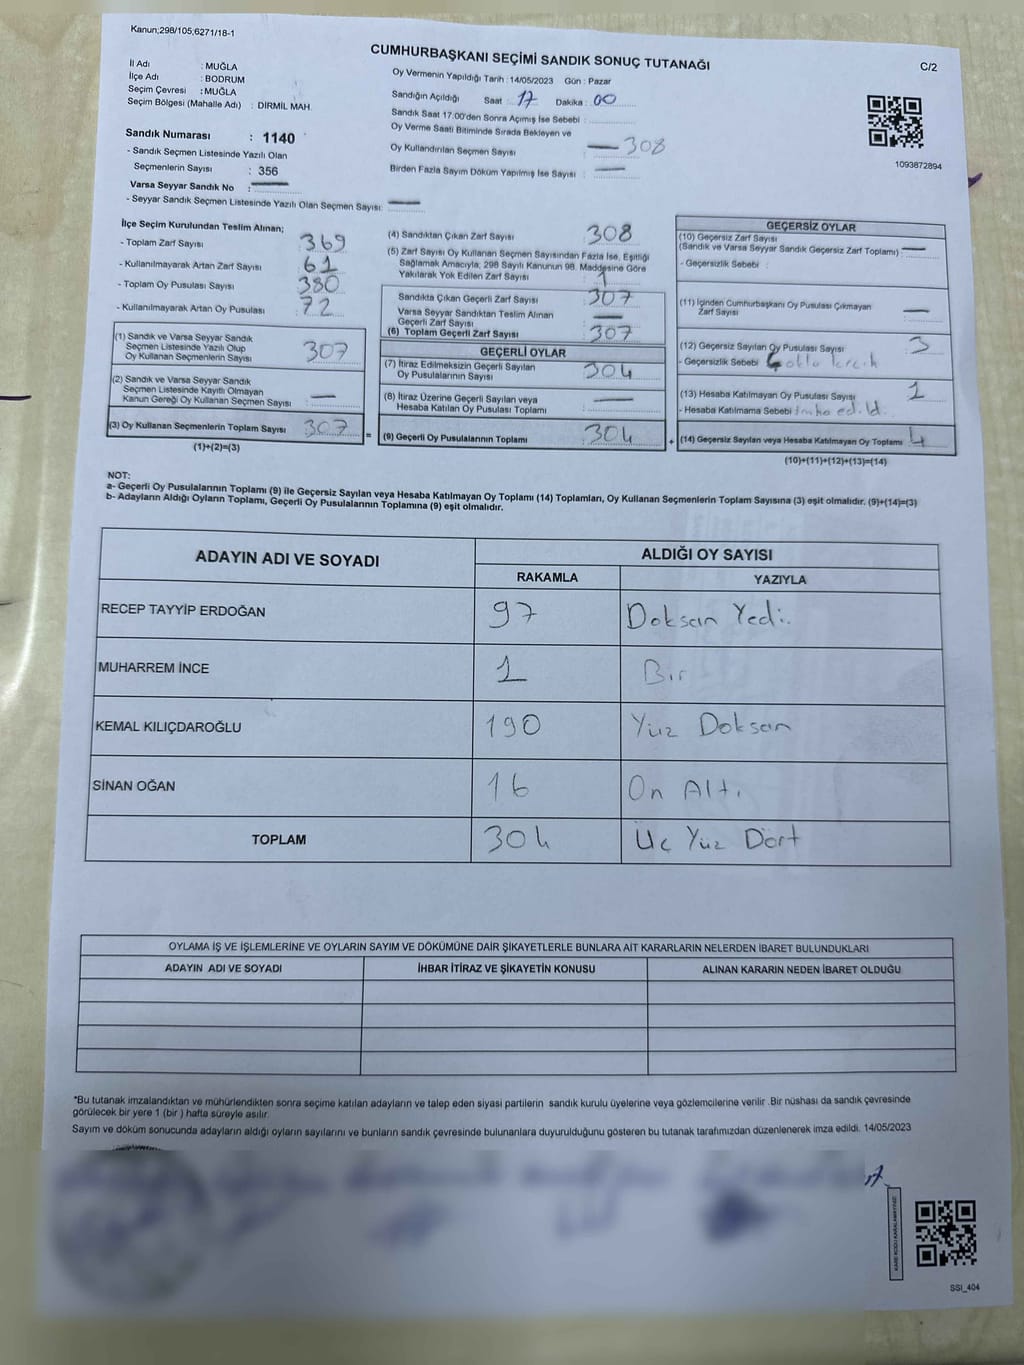 Kanun;298/105;6271/18-1
CUMHURBAŞKANI SEÇİMİ SANDIK SONUÇ TUTANAĞI
C/2
İl Adı : MUĞLA
İlçe Adı : BODRUM
Seçim Çevresi : MUĞLA
Seçim Bölgesi (Mahalle Adı) : DİRMİL MAH.
Oy Vermenin Yapıldığı Tarih : 14/05/2023 Gün : Pazar
Sandığın Açıldığı Saat : 17 Dakika : 00
Sandık Saat 17:00'den Sonra Açımış İse Sebebi :
Oy Verme Saati Bitiminde Sırada Bekleyen ve
Oy Kullandırılan Seçmen Sayısı : 308
Birden Fazla Sayım Döküm Yapılmış İse Sayısı :
1093872894
Sandık Numarası : 1140
- Sandık Seçmen Listesinde Yazılı Olan
Seçmenlerin Sayısı : 356
Varsa Seyyar Sandık No :
- Seyyar Sandık Seçmen Listesinde Yazılı Olan Seçmen Sayısı:
İlçe Seçim Kurulundan Teslim Alınan;
- Toplam Zarf Sayısı : 369
- Kullanılmayarak Artan Zarf Sayısı : 61
- Toplam Oy Pusulası Sayısı : 380
- Kullanılmayarak Artan Oy Pusulası : 72
(1) Sandık ve Varsa Seyyar Sandık
Seçmen Listesinde Yazılı Olup
Oy Kullanan Seçmenlerin Sayısı : 307
(2) Sandık ve Varsa Seyyar Sandık
Seçmen Listesinde Kayıtlı Olmayan
Kanun Gereği Oy Kullanan Seçmen Sayısı :
(3) Oy Kullanan Seçmenlerin Toplam Sayısı : 307
(1)+(2)=(3)
(4) Sandıktan Çıkan Zarf Sayısı : 308
(5) Zarf Sayısı Oy Kullanan Seçmen Sayısından Fazla İse, Eşitliği
Sağlamak Amacıyla, 298 Sayılı Kanunun 98. Maddesine Göre
Yakılarak Yok Edilen Zarf Sayısı : 1
Sandıkta Çıkan Geçerli Zarf Sayısı : 307
Varsa Seyyar Sandıktan Teslim Alınan
Geçerli Zarf Sayısı :
(6) Toplam Geçerli Zarf Sayısı : 307
GEÇERLİ OYLAR
(7) İtiraz Edilmeksizin Geçerli Sayılan
Oy Pusulalarının Sayısı : 304
(8) İtiraz Üzerine Geçerli Sayılan veya
Hesaba Katılan Oy Pusulası Toplamı :
= (9) Geçerli Oy Pusulalarının Toplamı : 304
GEÇERSİZ OYLAR
(10) Geçersiz Zarf Sayısı
(Sandık ve Varsa Seyyar Sandık Geçersiz Zarf Toplamı) :
- Geçersizlik Sebebi :
(11) İçinden Cumhurbaşkanı Oy Pusulası Çıkmayan
Zarf Sayısı :
(12) Geçersiz Sayılan Oy Pusulası Sayısı : 3
- Geçersizlik Sebebi Çoklu tercih
(13) Hesaba Katılmayan Oy Pusulası Sayısı : 1
- Hesaba Katılmama Sebebi : imha edildi.
+ (14) Geçersiz Sayılan veya Hesaba Katılmayan Oy Toplamı : 4
(10)+(11)+(12)+(13)=(14)
NOT:
a- Geçerli Oy Pusulalarının Toplamı (9) ile Geçersiz Sayılan veya Hesaba Katılmayan Oy Toplamı (14) Toplamları, Oy Kullanan Seçmenlerin Toplam Sayısına (3) eşit olmalıdır. (9)+(14)=(3)
b- Adayların Aldığı Oyların Toplamı, Geçerli Oy Pusulalarının Toplamına (9) eşit olmalıdır.
ADAYIN ADI VE SOYADI ALDIĞI OY SAYISI
RAKAMLA YAZIYLA
RECEP TAYYİP ERDOĞAN 97 Doksan Yedi.
MUHARREM İNCE 1 Bir
KEMAL KILIÇDAROĞLU 190 Yüz Doksan
SİNAN OĞAN 16 On Altı
TOPLAM 304 Üç Yüz Dört
OYLAMA İŞ VE İŞLEMLERİNE VE OYLARIN SAYIM VE DÖKÜMÜNE DAİR ŞİKAYETLERLE BUNLARA AİT KARARLARIN NELERDEN İBARET BULUNDUKLARI
ADAYIN ADI VE SOYADI İHBAR İTİRAZ VE ŞİKAYETİN KONUSU ALINAN KARARIN NEDEN İBARET OLDUĞU
*Bu tutanak imzalandıktan ve mühürlendikten sonra seçime katılan adayların ve talep eden siyasi partilerin sandık kurulu üyelerine veya gözlemcilerine verilir .Bir nüshası da sandık çevresinde
görülecek bir yere 1 (bir ) hafta süreyle asılır.
Sayım ve döküm sonucunda adayların aldığı oyların sayılarını ve bunların sandık çevresinde bulunanlara duyurulduğunu gösteren bu tutanak tarafımızdan düzenlenerek imza edildi. 14/05/2023
KARE KODU KARALAMAYINIZ!
SSI_404